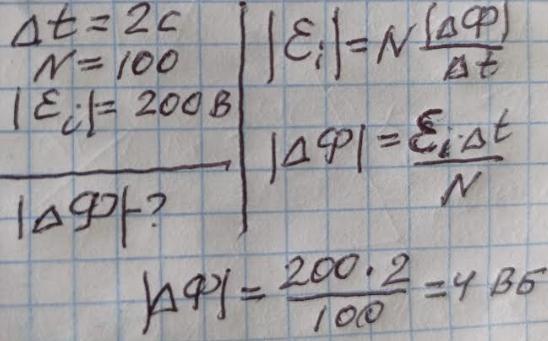 Δt = 2c
N = 100
|Ɛi| = 200В
|ΔФ|-?
|Ɛi| = N |ΔФ|/Δt
|ΔФ| = Ɛi·Δt/N
|ΔФ| = 200·2/100 = 4 Вб